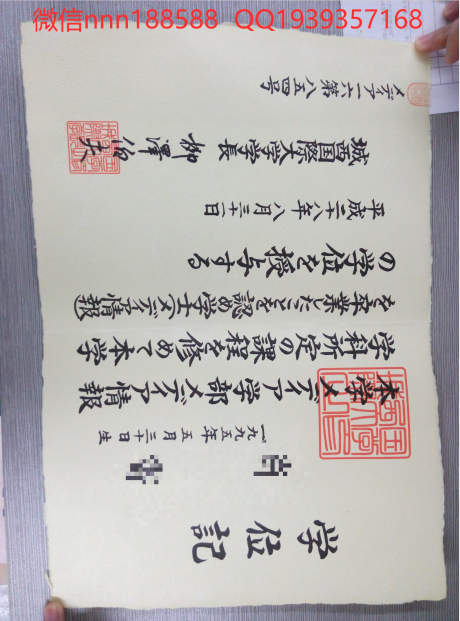 微信nnn188588 QQ1939357168
学位記
一九九五年五月三十日生
本学メディア学部メディア情報
学科所定の課程を修めて本学
を卒業したことを認め学士(メディア情報)
の学位を授与する
平成二十八年八月三十一日
城西国際大学学長 柳澤伯夫
メディア一六第八五四号